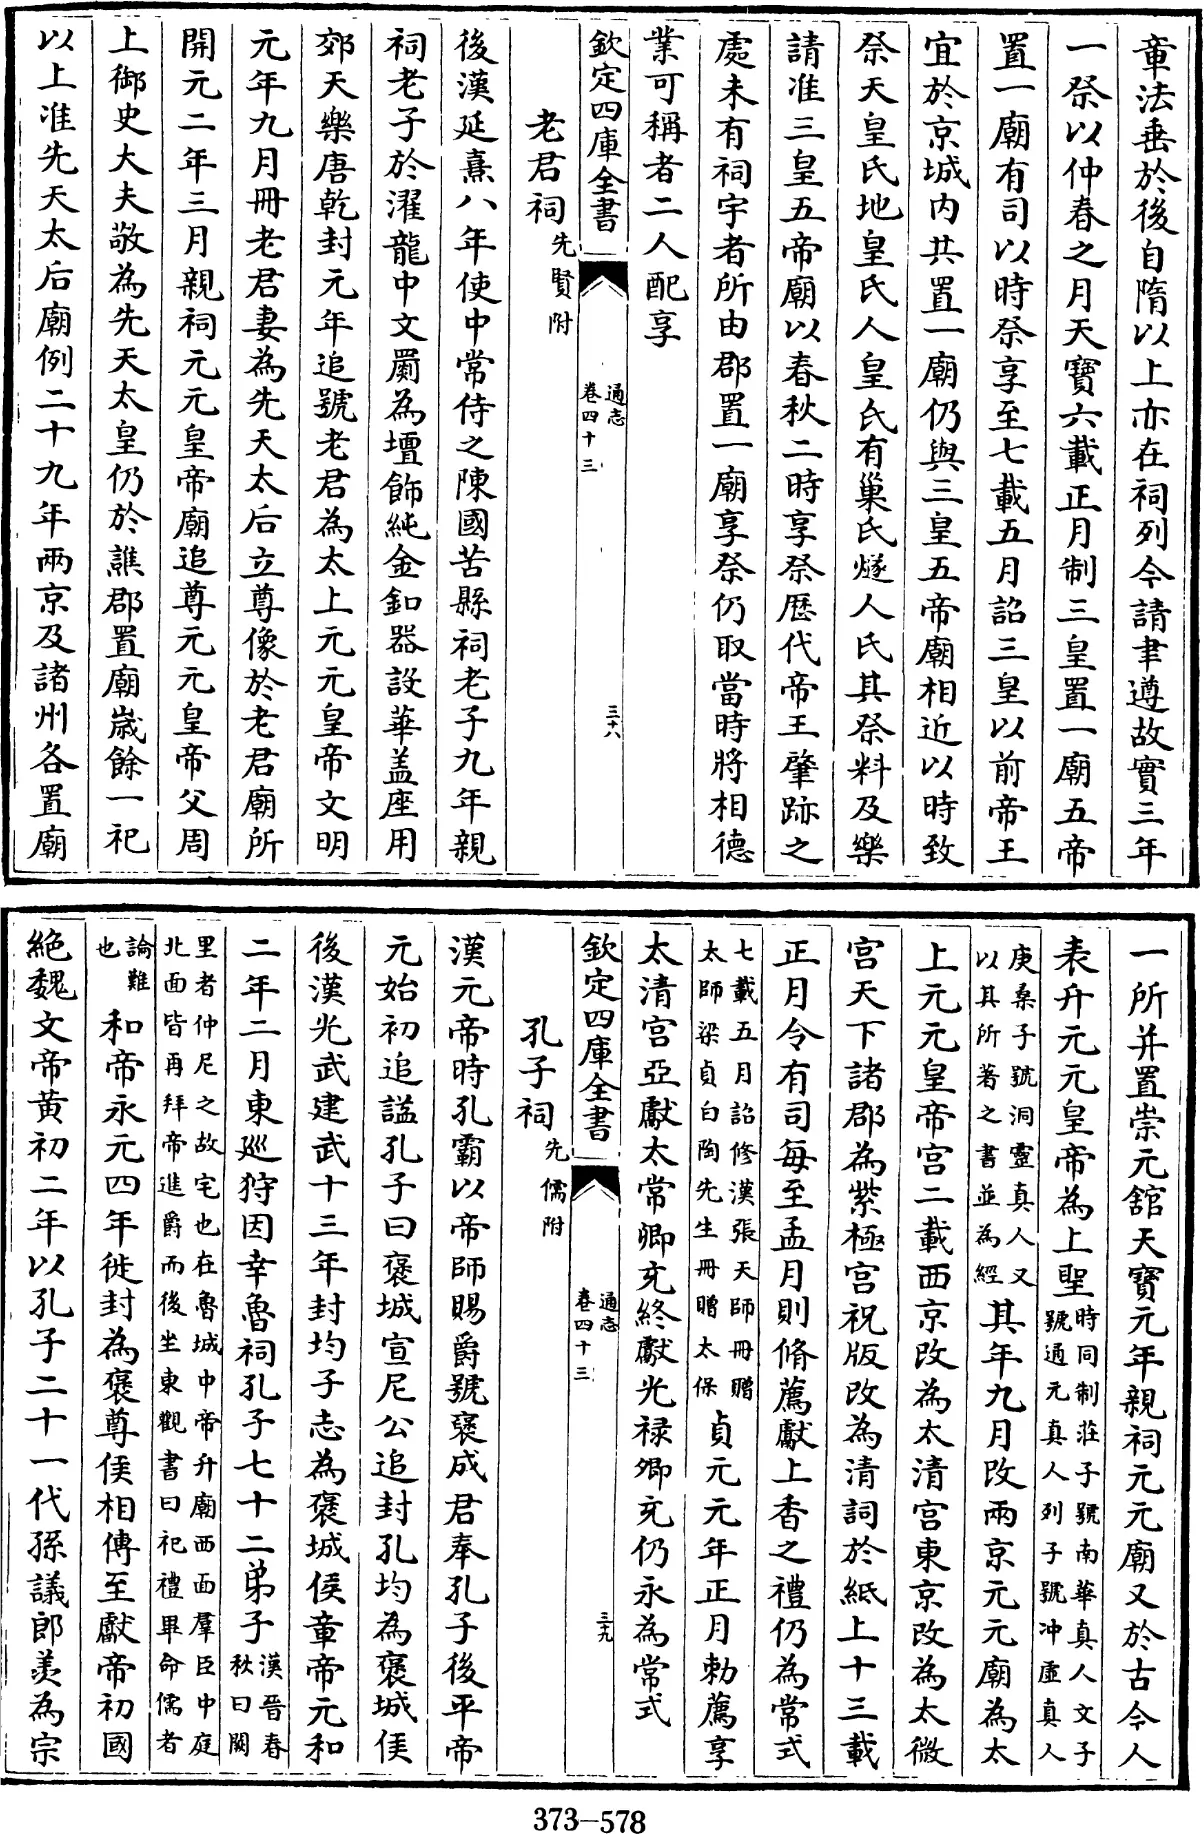 章法垂於後自隋以上亦在祠列今請聿遵故實三年
一祭以仲春之月天寶六載正月制三皇置一廟五帝
置一廟有司以時祭享至七載五月詔三皇以前帝王
宜於京城内共置一廟仍與三皇五帝廟相近以時致
祭天皇氏地皇氏人皇氏有巢氏燧人氏其祭料及樂
請准三皇五帝廟以春秋二時享祭歴代帝王肇跡之
處未有祠宇者所由郡置一廟享祭仍取當時將相德
業可稱者二人配享
欽定四庫全書
通志
卷四十三
三十八
老君祠先賢附
後漢延熹八年使中常侍之陳國苦縣祠老子九年親
祠老子於濯龍中文罽為壇飾純金釦器設華盖座用
郊天樂唐乾封元年追號老君為太上元元皇帝文明
元年九月冊老君妻為先天太后立尊像於老君廟所
開元二年三月親祠元元皇帝廟追尊元元皇帝父周
上御史大夫敬為先天太皇仍於譙郡置廟歳餘一祀
以上准先天太后廟例二十九年兩京及諸州各置廟
一所并置崇元舘天寶元年親祠元元廟又於古今人
表升元元皇帝為上聖時同制莊子號南華真人文子
號通元真人列子號冲虛真人
庚桑子號洞靈真人又
以其所著之書並為經其年九月改兩京元元廟為太
上元元皇帝宫二載西京改為太清宫東京改為太微
宫天下諸郡為紫極宫祝版改為清詞於紙上十三載
正月令有司每至孟月則脩薦獻上香之禮仍為常式
七載五月詔修漢張天師冊贈
太師梁貞白陶先生冊贈太保貞元元年正月勅薦享
太清宫亞獻太常卿充終獻光禄卿充仍永為常式
欽定四庫全書
通志
卷四十三
三十九
孔子祠先儒附
漢元帝時孔霸以帝師賜爵號褒成君奉孔子後平帝
元始初追謚孔子曰褒城宣尼公追封孔均為褒城侯
後漢光武建武十三年封均子志為褒城侯章帝元和
二年二月東巡狩因幸魯祠孔子七十二弟子漢晉春
秋曰闕
里者仲尼之故宅也在魯城中帝升廟西面羣臣中庭
北面皆再拜帝進爵而後坐東觀書曰祀禮畢命儒者
論難
也和帝永元四年徙封為褒尊侯相傳至獻帝初國
絶魏文帝黄初二年以孔子二十一代孫議郎羨為宗
373-578